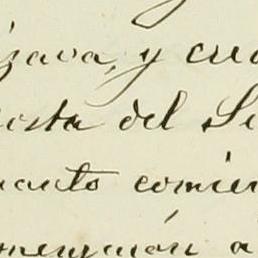 zava, y cua
osta del Se
uanto comien
mención a